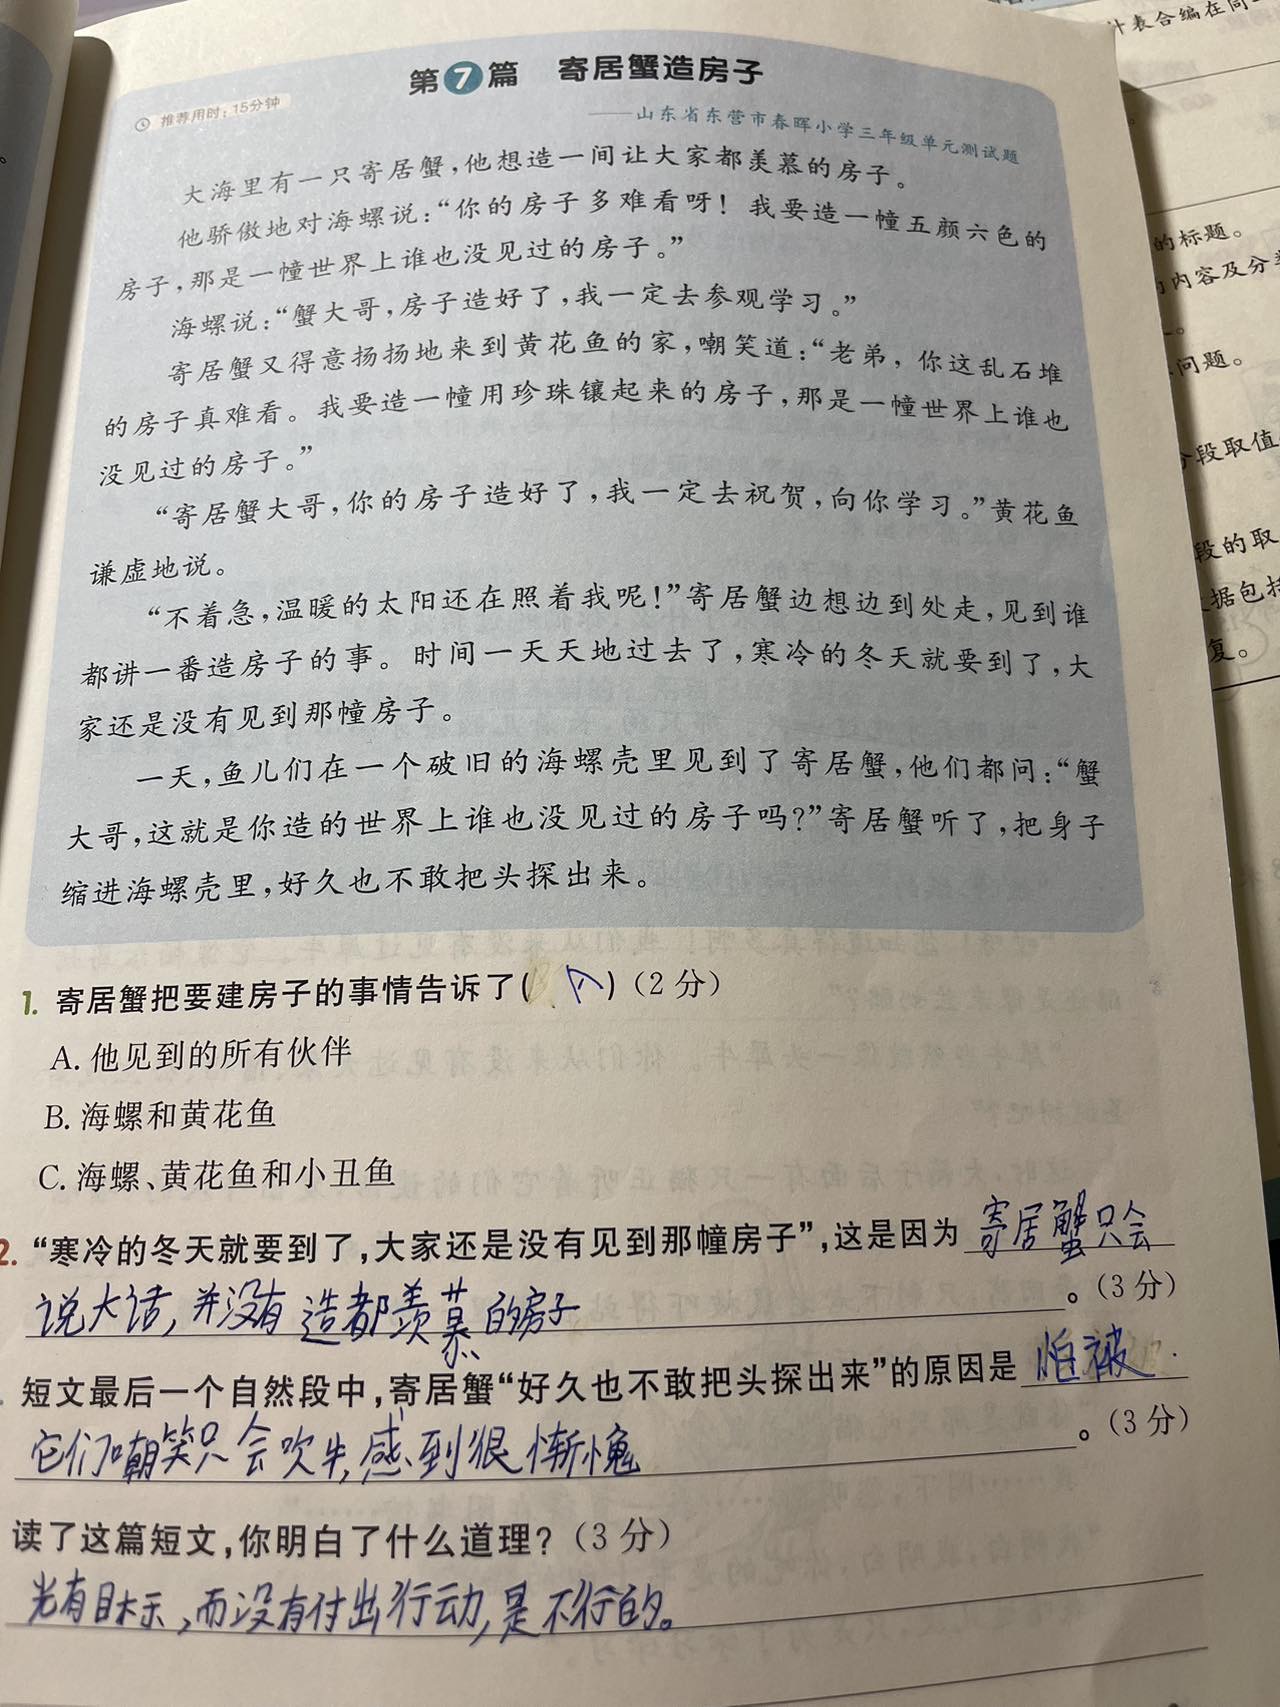 计表合编在同
第7篇 寄居蟹造房子
推荐用时：15分钟
——山东省东营市春晖小学三年级单元测试题
大海里有一只寄居蟹，他想造一间让大家都羡慕的房子。
他骄傲地对海螺说：“你的房子多难看呀！我要造一幢五颜六色的
房子，那是一幢世界上谁也没见过的房子。”
海螺说：“蟹大哥，房子造好了，我一定去参观学习。”
寄居蟹又得意扬扬地来到黄花鱼的家，嘲笑道：“老弟，你这乱石堆
的房子真难看。我要造一幢用珍珠镶起来的房子，那是一幢世界上谁也
没见过的房子。”
“寄居蟹大哥，你的房子造好了，我一定去祝贺，向你学习。”黄花鱼
谦虚地说。
“不着急，温暖的太阳还在照着我呢！”寄居蟹边想边到处走，见到谁
都讲一番造房子的事。时间一天天地过去了，寒冷的冬天就要到了，大
家还是没有见到那幢房子。
一天，鱼儿们在一个破旧的海螺壳里见到了寄居蟹，他们都问：“蟹
大哥，这就是你造的世界上谁也没见过的房子吗？”寄居蟹听了，把身子
缩进海螺壳里，好久也不敢把头探出来。
的标题。
内容及分类
问题。
分段取值
段的取
据包括
复。
1. 寄居蟹把要建房子的事情告诉了( A )（2分）
A. 他见到的所有伙伴
B. 海螺和黄花鱼
C. 海螺、黄花鱼和小丑鱼
2. “寒冷的冬天就要到了，大家还是没有见到那幢房子”，这是因为 寄居蟹只会
说大话，并没有造都羡慕的房子。（3分）
短文最后一个自然段中，寄居蟹“好久也不敢把头探出来”的原因是 怕被
它们嘲笑只会吹牛，感到很惭愧。（3分）
读了这篇短文，你明白了什么道理？（3分）
光有目标，而没有付出行动，是不行的。